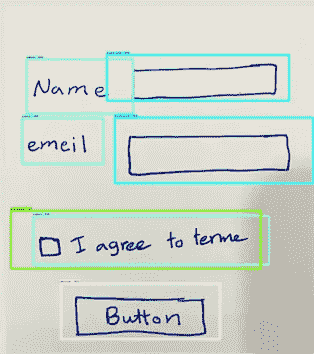 Name
emeil
I agree to terme
Button